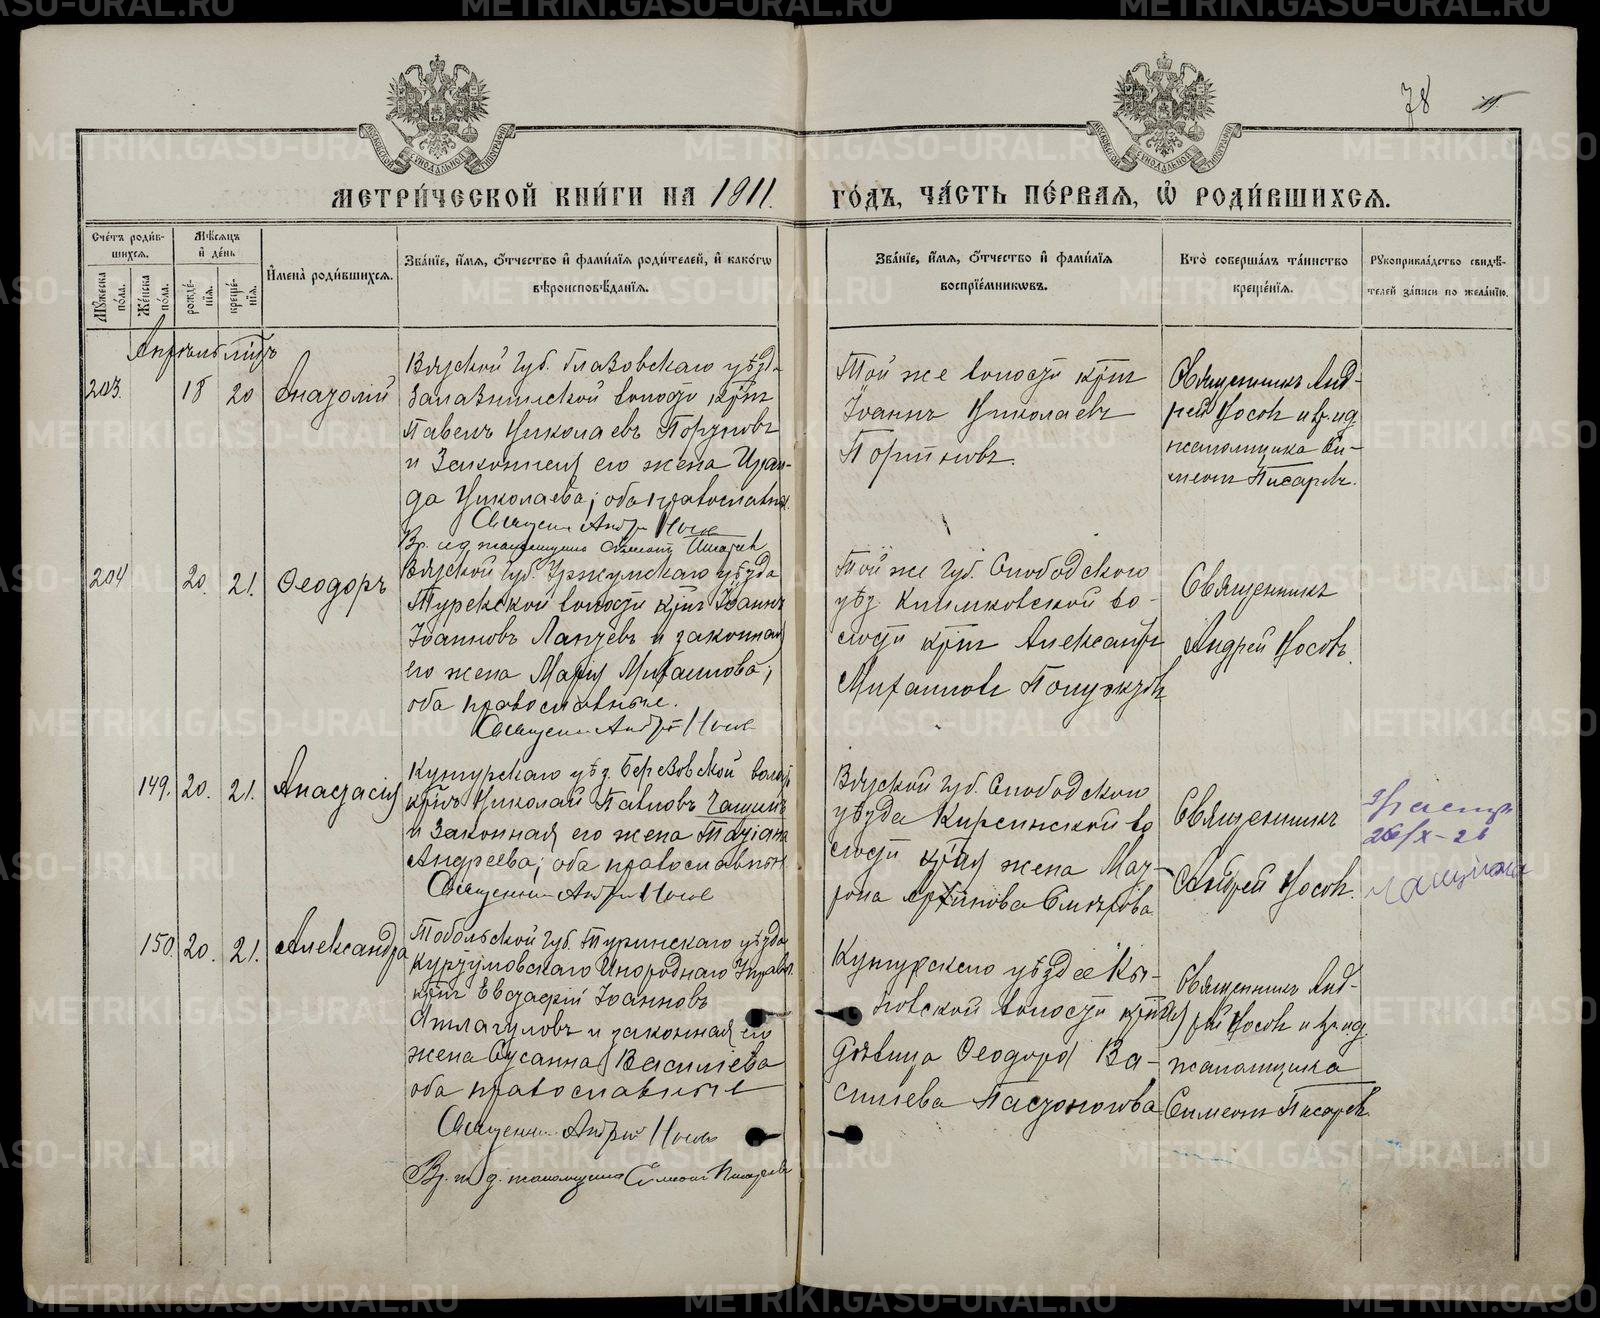 78
МЕТРИ́ЧЕСКОЙ КНИ́ГИ НА 1911.
ГО́ДЪ, ЧА́СТЬ ПЕ́РВАѦ, Ѡ҆ РОДИ́ВШИХСѦ.
Сче́тъ роди́в-
шихсѧ.
Мꙋ́жеска по́ла.
Же́нска по́ла.
Мѣ́сѧцъ
и҆ де́нь
рожде́-
нїѧ.
креще́-
нїѧ.
И҆мена̀ роди́вшихсѧ.
Зва́нїе, и҆́мѧ, ѻ҆́тчество и҆ фами́лїѧ роди́телей, и҆ како́гѡ
вѣроисповѣ́данїѧ.
Зва́нїе, и҆́мѧ, ѻ҆́тчество и҆ фами́лїѧ
воспрїе́мникѡвъ.
Кто̀ соверша́лъ та́инство
креще́нїѧ.
Рꙋкоприкла́дство свидѣ́-
телей за́писи по жела́нїю.
Апрѣль мѣсяцъ
203.
18
20
Анатолій
Вятской губ. Глазовскаго уѣзда
волости крест.
Павелъ Николаевъ
и законная его жена Ираи-
да Николаева; оба православные.
Священ. Андрей Носовъ
Вр. и д. псаломщика Симеонъ Писаревъ
Той же волости крест.
Іоаннъ Николаевъ
Священникъ Анд-
рей Носовъ и вр. и д.
псаломщика Си-
меонъ Писаревъ.
204
20.
21.
Ѳеодоръ
Вятской губ. Уржумскаго уѣзда
Турекской волости крест. Іоаннъ
Іоанновъ Лаптевъ и законная
его жена Марія Михаилова;
оба православные.
Священ. Андрей Носовъ
Той же губ. Слободского
уѣз. Климковской во-
лости крест. Александръ
Михаиловъ
Священникъ
Андрей Носовъ.
149.
20.
21.
Анастасія
Кунгурскаго уѣз. Березовской волости
крест. Николай Павловъ Чащинъ
и законная его жена Татіана
Андреева; оба православные
Священник Андрей Носовъ
Вятской губ. Слободского
уѣзда Кирсинской во
лости крест. жена Мат-
рона
Священникъ
Андрей Носовъ.
26/X-21
150.
20.
21.
Александра
Тобольской губ. Туринскаго уѣзда
Куртумовскаго Инороднаго Управл.
крест. Евстафій Іоанновъ
Атлагуловъ и законная его
жена Сусанна Василіева
оба православные
Священник Андрей Носовъ
Вр. и д. псаломщика Симеонъ Писаревъ
Кунгурскаго уѣзда Кы-
новской волости крест.
дѣвица Ѳеодора Ва-
силіева
Священникъ Анд-
рей Носовъ и вр. и д.
псаломщика
Симеонъ Писаревъ.
METRIKI.GASO-URAL.RU